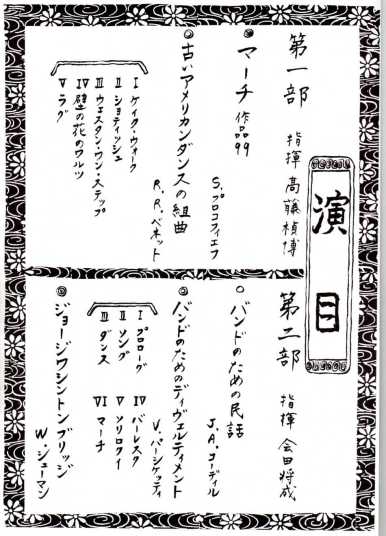 演目
第一部
指揮 高藤楨博
◉マーチ 作品99
S.プロコフィエフ
◉古いアメリカンダンスの組曲
R.R.ベネット
Ⅰ ケイク・ウォーク
Ⅱ ショティッシュ
Ⅲ ウェスタン・ワン・ステップ
Ⅳ 壁の花のワルツ
Ⅴ ラグ
第二部
指揮 会田将成
○バンドのための民話
J.A.コーディル
◎バンドのためのディヴェルティメント
V.パーシケッティ
Ⅰ プロローグ
Ⅱ ソング
Ⅲ ダンス
Ⅳ バーレスク
Ⅴ ソリロクイ
Ⅵ マーチ
◎ジョージワシントンブリッジ
W.シューマン